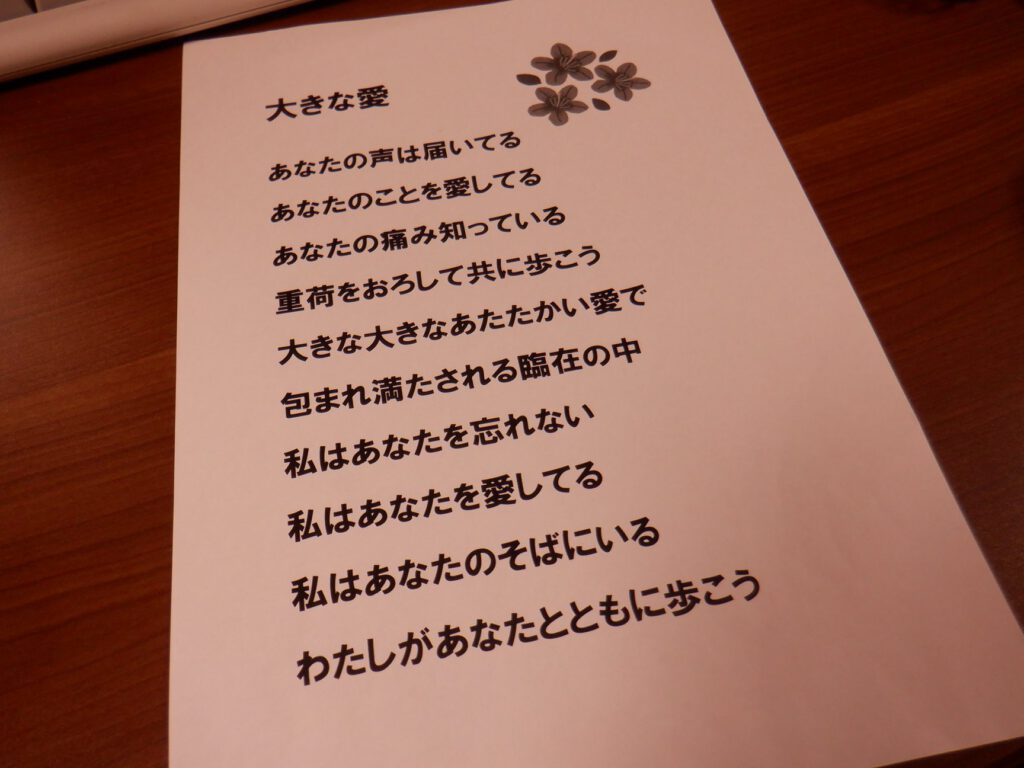 大きな愛
あなたの声は届いてる
あなたのことを愛してる
あなたの痛み知っている
重荷をおろして共に歩こう
大きな大きなあたたかい愛で
包まれ満たされる臨在の中
私はあなたを忘れない
私はあなたを愛してる
私はあなたのそばにいる
わたしがあなたとともに歩こう